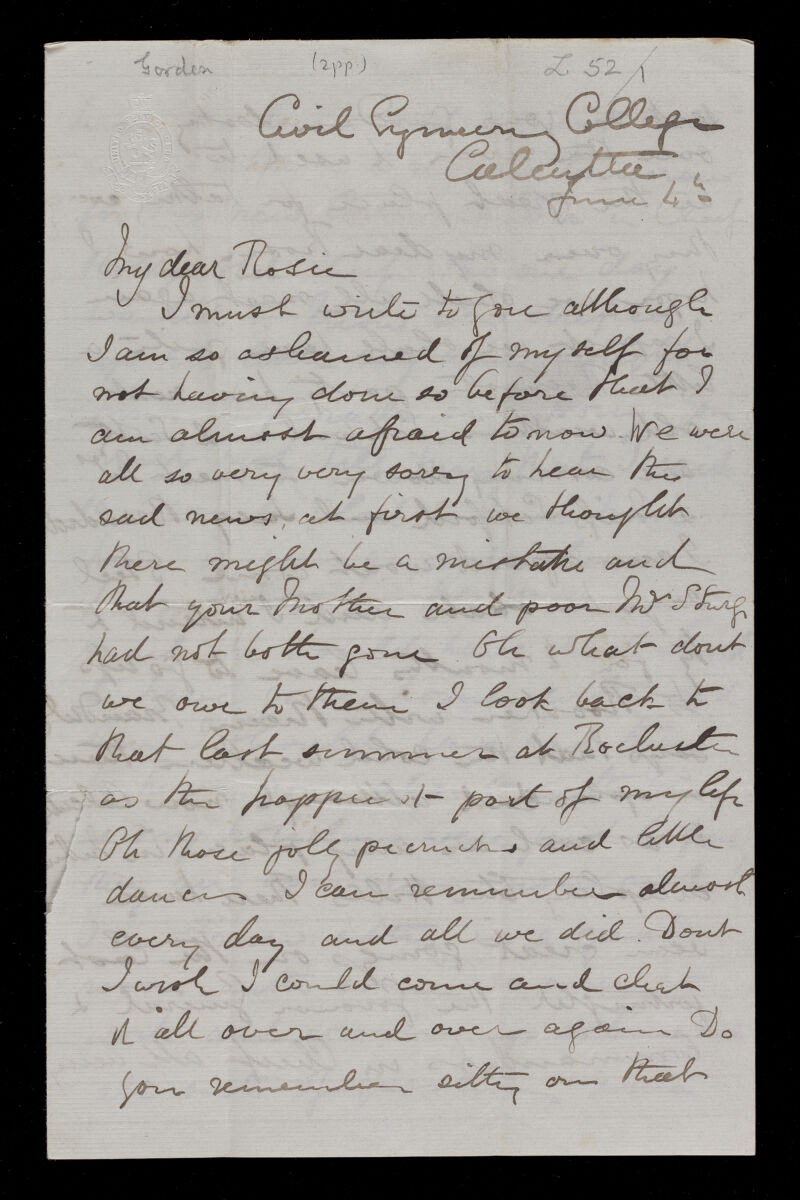 Gorden (2pp.) L 52/1
Civil Engineering College
Calcutta
June 4th
My dear Rosie
I must write to you although
I am so ashamed of myself for
not having done so before that I
am almost afraid to now. We were
all so very very sorry to hear the
sad news, at first we thought
there might be a mistake and
that your Mother and poor Mr Sturge
had not both gone. Oh what dont
we owe to them I look back to
that last summer at Rochester
as the happiest part of my life
Oh those jolly picnics and little
dances I can remember almost
every day and all we did. Dont
I wish I could come and chat
it all over and over again Do
you remember sitting on that